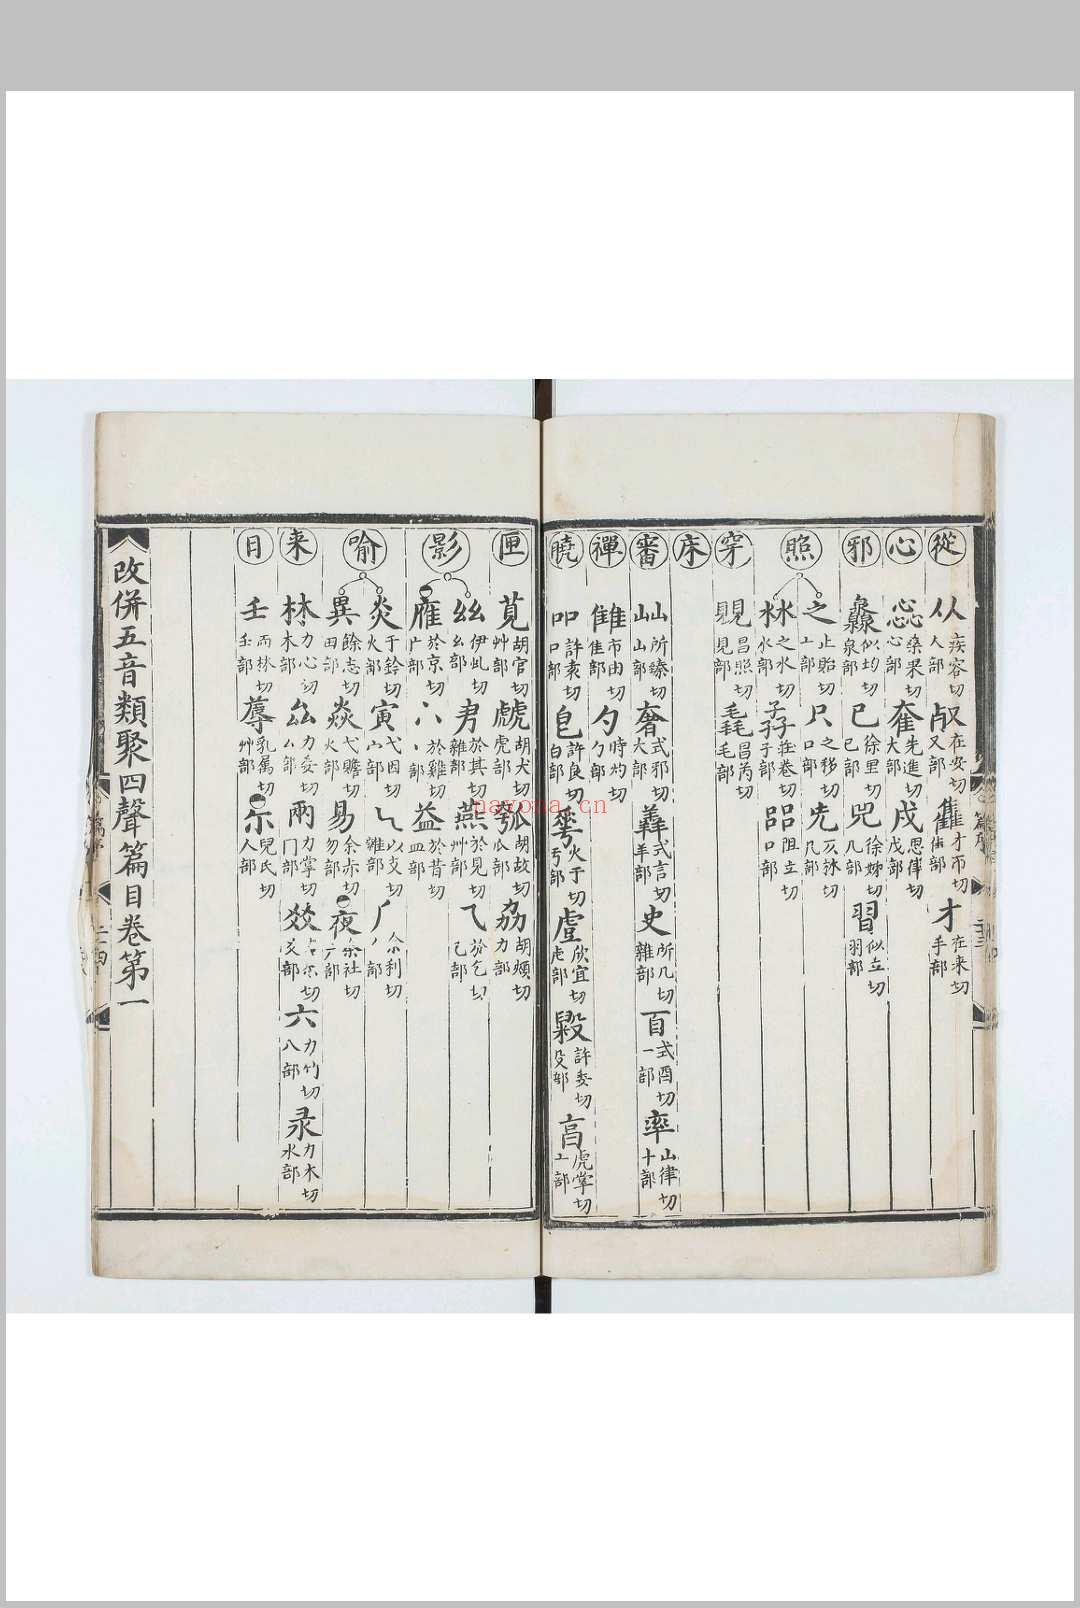 從 从 疾容切 人部 㕡 在安切 又部 雥 才帀切 隹部 才 在來切 手部
心 惢 桑果切 心部 奞 先進切 大部 戌 思律切 戊部
邪 灥 似均切 泉部 巳 徐里切 己部 兕 徐姊切 几部 習 似立切 羽部
照 之 止貽切 工部 只 之移切 口部
沝 之水切 水部 孨 莊卷切 子部 㗊 阻立切 口部
穿 覞 昌照切 見部 毳 昌芮切 毛部
床
審 山 所臻切 山部 奢 式邪切 大部 羴 式言切 羊部 史 所几切 雜部 百 式酉切 一部 率 山律切 十部
禪 雔 市由切 隹部 勺 時灼切 勹部
曉 吅 許袁切 口部 皀 許良切 白部 火于切 虍 欣宜切 虍部 毇 許委切 殳部 虎掌切
匣 萈 胡官切 艸部 虤 胡犬切 虎部 瓠 胡故切 瓜部 劦 胡頰切 力部
影 𢆶 伊虬切 幺部 㐆 於其切 雜部 燕 於見切 艸部 乁 於乞切 乙部
雁 於京切 广部 八 於雞切 八部 益 於昔切 皿部
喻 炎 于鈴切 火部 寅 弋因切 宀部 乀 以支切 雜部 𠂆 余利切
異 餘志切 田部 焱 弋贍切 火部 易 余赤切 勿部 夜 余社切
来 林 力心切 木部 厽 力委切 厶部 兩 力掌切 冂部 㸚 爻部 六 力竹切 八部 录 力木切 水部
日 壬 而林切 壬部 蓐 乳屬切 艸部 尒 兒氏切 人部
改併五音類聚四聲篇目卷第一
nayona.cn